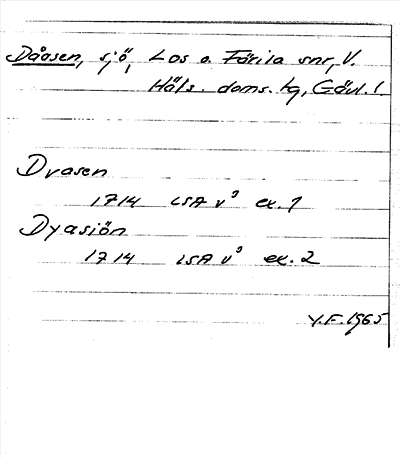 Dåasen, sjö, Los o. Färila snr, V.
Häls. doms. tg, Gävl. l.
Dvasen
1714 LSA V³ ex. 1
Dyasiön
1714 LSA V³ ex. 2
Y.F. 1965